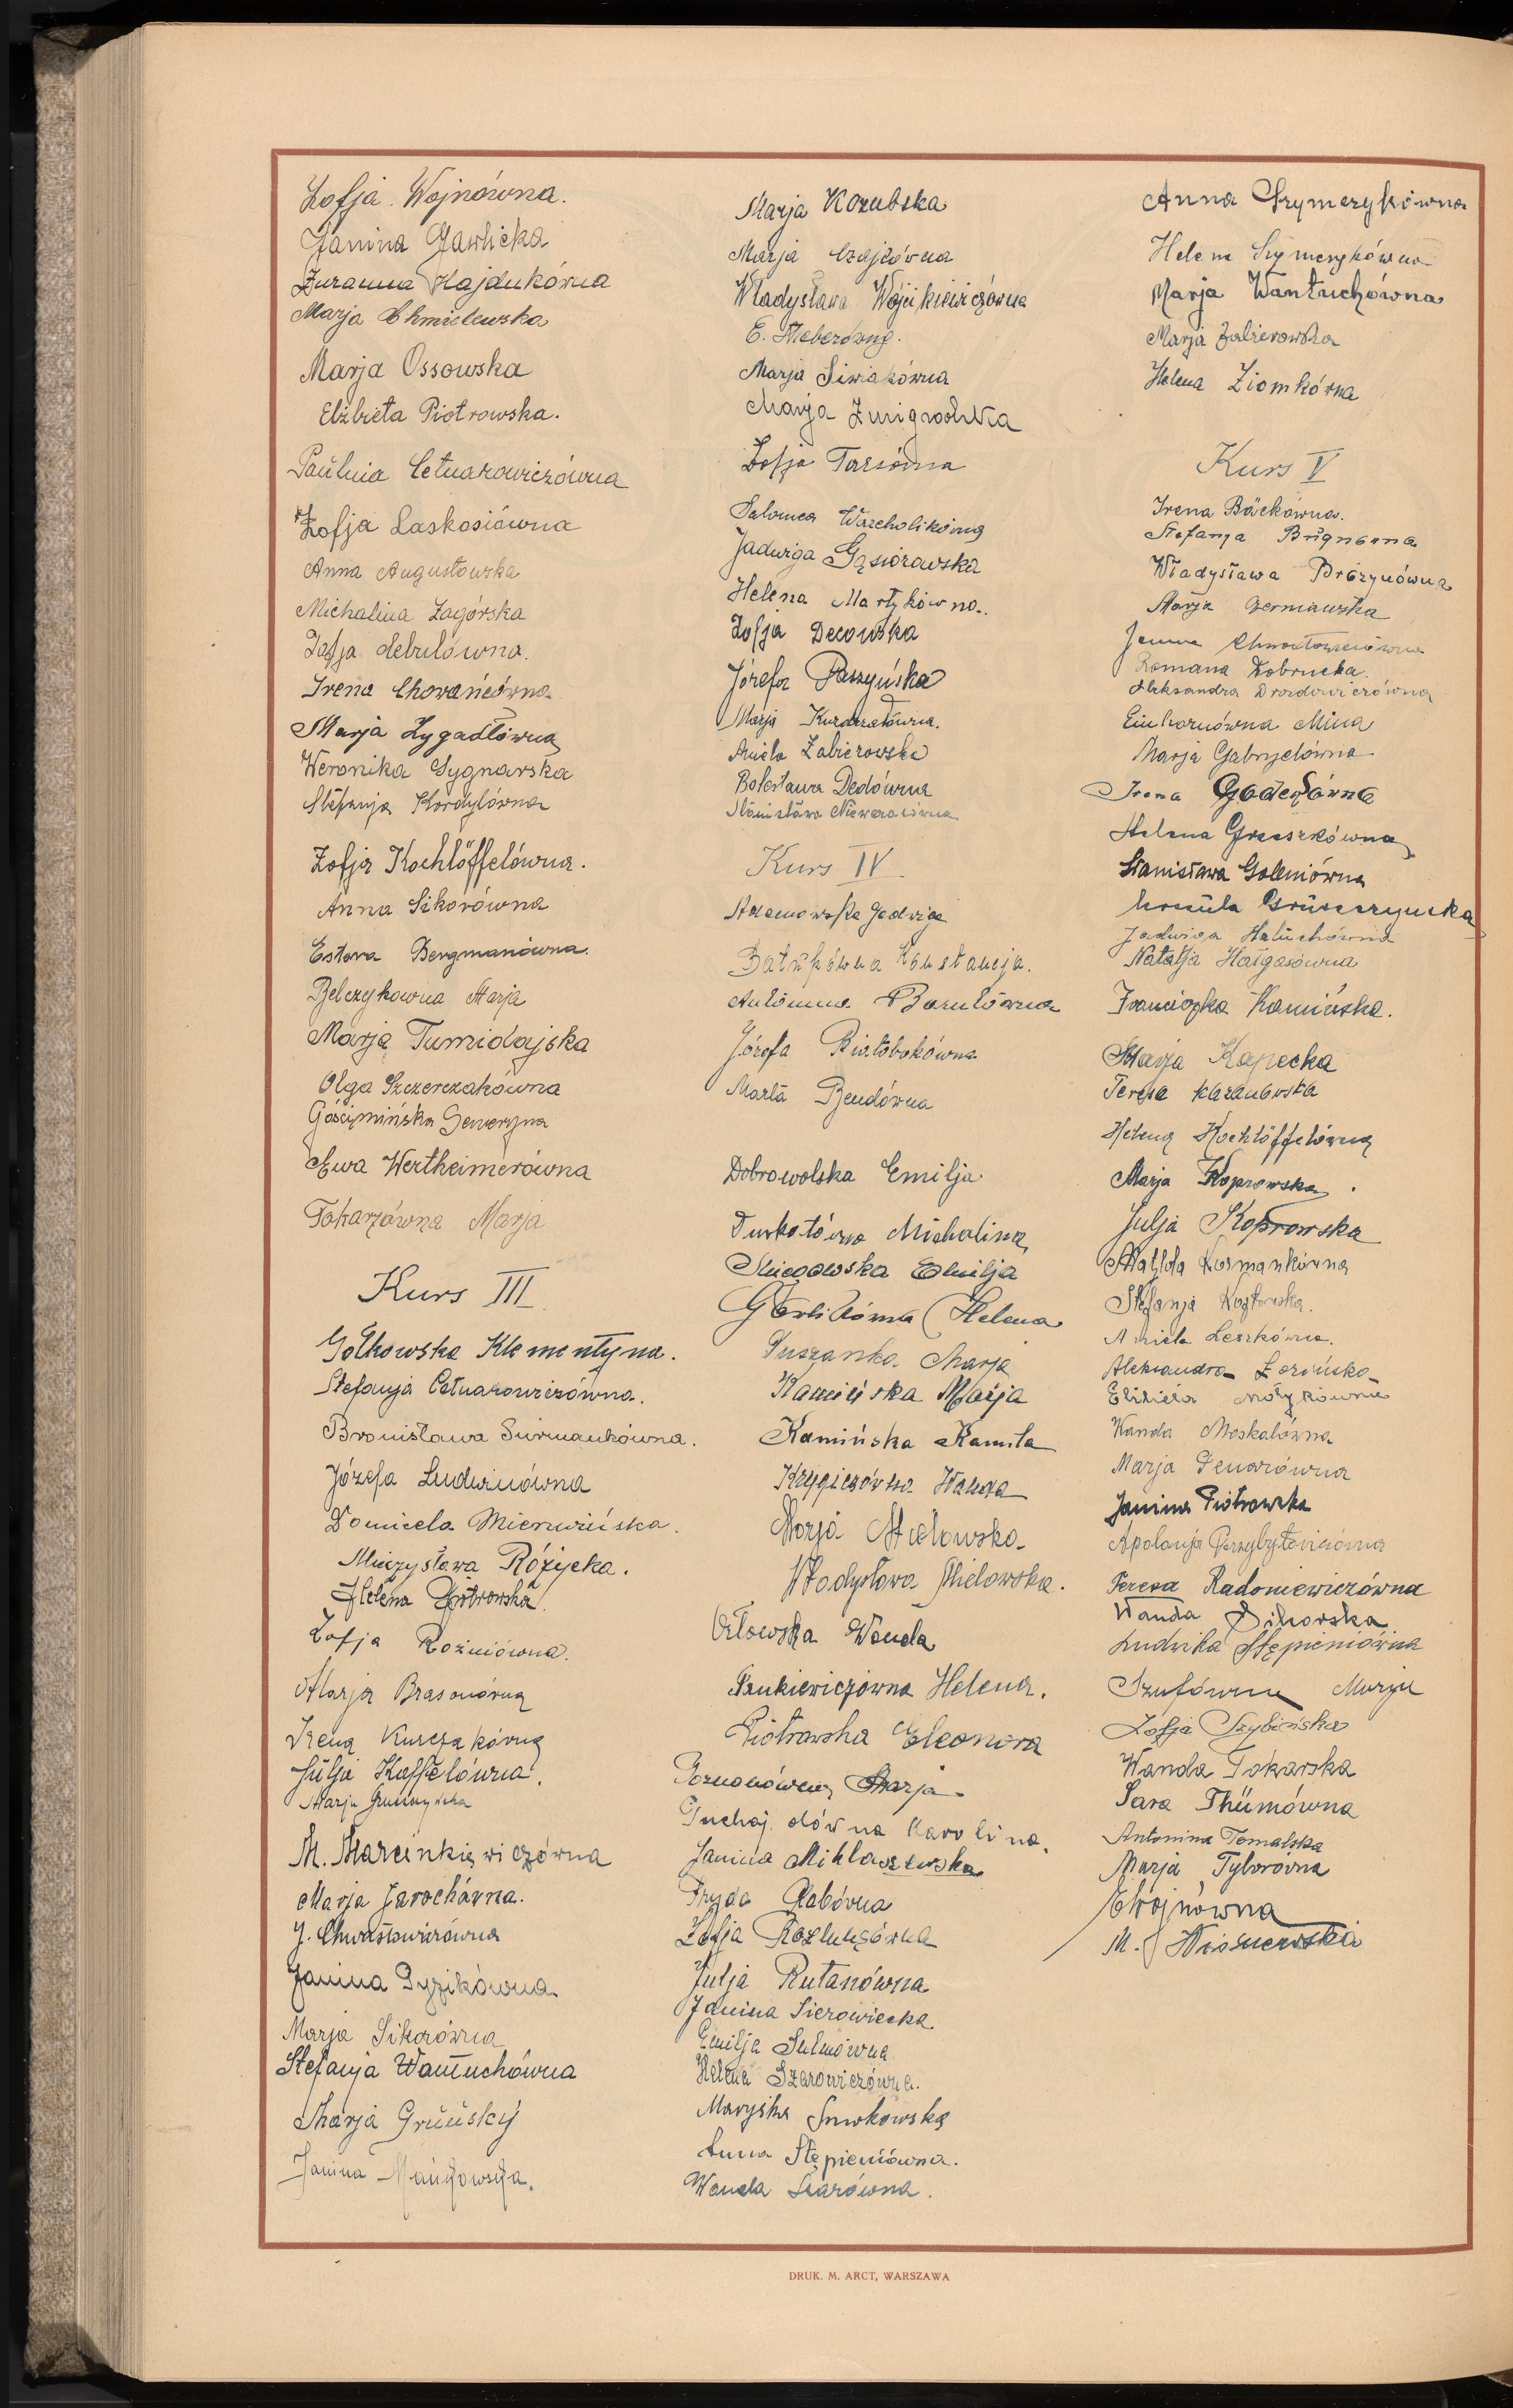 Zofja Wojnówna.
Janina Gawlicka
Zuzanna Hajdukówna
Marja Chmielewska
Marja Ossowska
Elżbieta Piotrowska.
Paulina Cetnarowiczówna
Zofja Laskosiówna
Anna Augustowska
Michalina Zagórska
Zofja Cebulówna.
Irena Chovańcówna
Marja Zygadłówna
Weronika Sygnarska
Stefanja Kordylówna
Zofja Kochlöffelówna.
Anna Sikorówna
Estera Bergmanówna.
Belczykowna Marja
Marja Tumidajska
Olga Szczerczakówna
Gościmińska Seweryna
Ewa Wertheimerówna
Tokarzówna Marja
Kurs III
Gołkowska Klementyna.
Stefanja Cetnarowiczówna.
Bronisława Surmankówna.
Józefa Ludwinówna
Domicela Mierzwińska.
Mieczysława Różycka.
Helena Piotrowska
Zofja Rozniówna.
Marja Brasonówna
Irena Kurczakówna
Julja Koffelówna.
Marja Gruszczyńska
M. Marcinkiewiczówna
Marja Jarochówna.
J. Chwastowiczówna
Janina Dyzikówna
Marja Sikorówna
Stefanja Wantuchówna
Marja Gruńsky
Janina Mańkowska.
Marja Kozubska
Marja Czajkówna
Władysława Wójcikiewiczówna
E. Weberówna.
Marja Siwiakówna
Marja Zmigrodzka
Zofja Tarsówna
Salomea Warcholikówna
Jadwiga Gąsiorowska
Helena Martykówna.
Zofja Decowska
Józefa Paszyńska
Marja
Aniela Zabierowska
Bolesława Dedówna
Stanisława
Kurs IV
Adamowska Jadwiga
Batukówna Konstancja.
Antonina Barutówna
Józefa Białobokówna
Marta Bendówna
Dobrowolska Emilja
Durkotówna Michalina
Emilja
Gerlikówna Helena
Marja
Kamińska Marja
Kamińska Kamila
Krygierówna Wanda
Marja Mielowska
Władysława Mielowska.
Orłowska Wanda
Penkiewiczówna Helena.
Piotrowska Eleonora
Poznanówna Marja
Puchajdówna Karolina
Janina Mikłaszewska
Fryda Rabówna
Zofja
Julja Rutanówna
Janina Sierowiecka
Emilja Sulmówna
Helena Szarowiczówna.
Maryśka Smokowska
Anna Stępieniówna.
Wanda Szarówna.
Anna Szymczykówna
Helena Szymczykówna
Marja Wantuchówna
Marja Zabierowska
Helena Ziomkówna
Kurs V
Irena Bäckówna.
Stefanja Brignerówna
Władysława Bróżynówna
Marja Czerniawska
Janina Chwastowiczówna
Romana Dobrucka.
Aleksandra Drozdowiczówna
Einhornówna Mina
Marja Gabryelówna
Irena
Helena Groszkówna
Stanisława Goleniówna
Urszula Gruszczyńska
Jadwiga Haluchówna
Natalja Hałgasówna
Franciszka Kamińska.
Marja Kapecka
Teresa Karanowska
Helena Kochlöffelówna
Marja Koprowska.
Julja Koprowska
Matylda Kormankówna
Stefanja Kozłowska.
Aniela Leszkówna.
Aleksandra Łozińska
Elżbieta Motykówna
Wanda Moskalówna
Marja Penarówna
Janina Piotrowska
Apolonja
Teresa Radoniewiczówna
Wanda Sikorska
Ludwika Stępieniówna
Szufówna Marja
Zofja Szybińska
Wanda Tokarska
Sara Thümówna
Antonina Tomalska
Marja Tyborówna
E Wojnówna
M. Wiśniewska
DRUK. M. ARCT, WARSZAWA